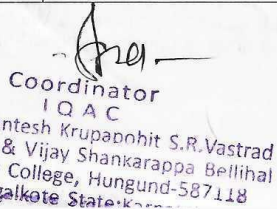 Coordinator
I Q A C
ntesh Krupapohit S.R.Vastrad
& Vijay Shankarappa Bellihal
College, Hungund-587118
galkote State: